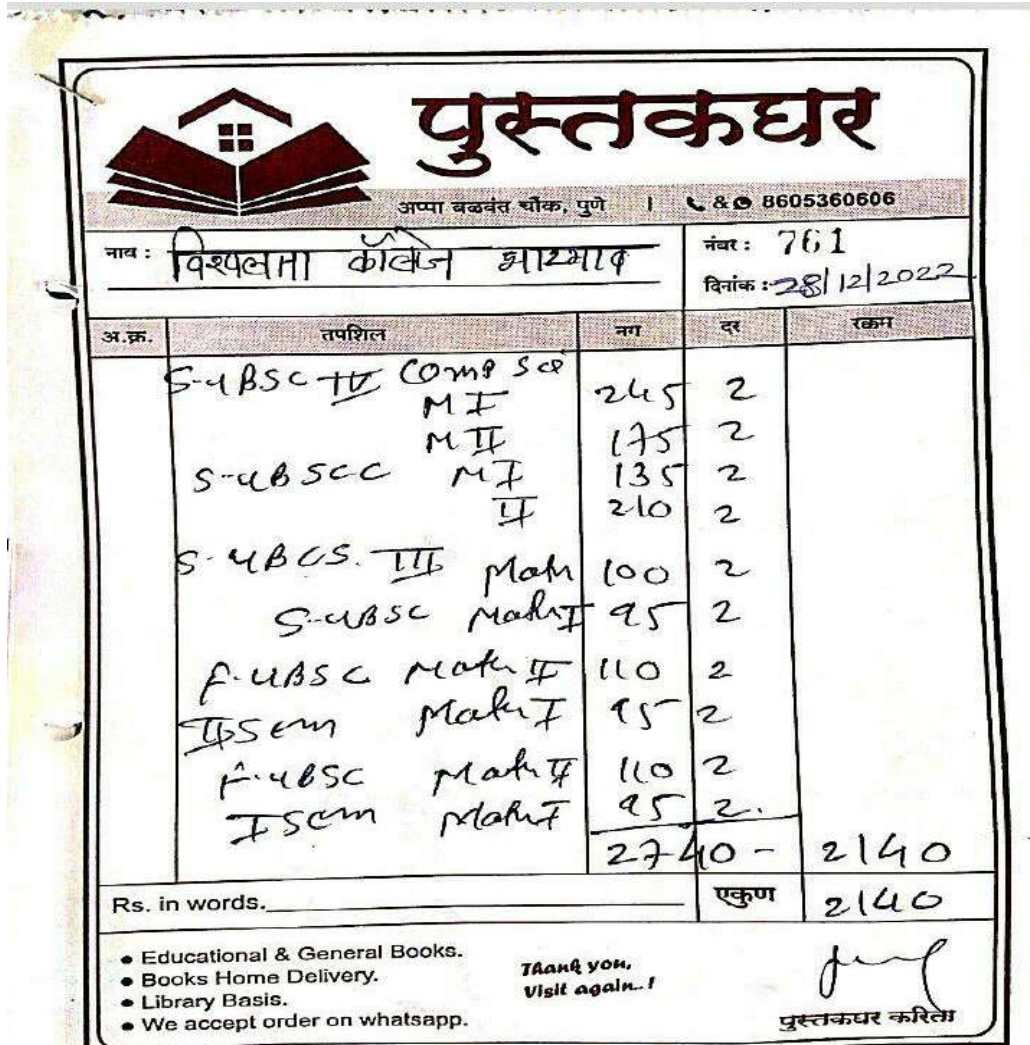 पुस्तकघर
अप्पा बळवंत चौक, पुणे | & 8605360606
नाव : कॉलेज
नंबर : 761
दिनांक : 28/12/2022
अ.क्र. तपशिल नग दर रक्कम
S-YBSC IV Comp Sci
M I 245 2
M II 175 2
S-YBSCC M I 135 2
II 210 2
S.YBCS. III Math 100 2
S-YBSC Math I 95 2
F.YBSC Math II 110 2
II Sem Math I 95 2
F.YBSC Math II 110 2
I Sem Math I 95 2.
2740 - 2140
Rs. in words. एकुण 2140
• Educational & General Books.
• Books Home Delivery.
• Library Basis.
• We accept order on whatsapp.
Thank you,
Visit again..!
पुस्तकघर करिता